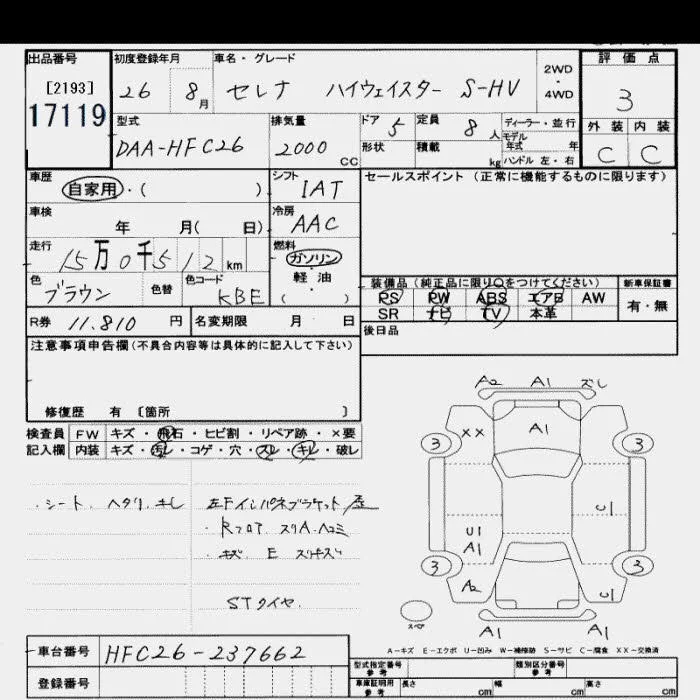 出品番号 初度登録年月 車名・グレード 2WD・4WD 評価点
[2193]
17119
26 8月 セレナ ハイウェイスター S-HV 3
型式 排気量 ドア 5 定員 8人 ディーラー・並行
モデル年式 年
外装 内装
DAA-HFC26 2000cc 形状 積載 kg ハンドル 左・右
C C
車歴 シフト セールスポイント (正常に機能するものに限ります)
自家用・( ) IAT
車検 冷房
年 月( 日) AAC
走行 燃料
15万0千512km ガソリン・軽油
( )
色 色替 色コード 装備品(純正品に限り○をつけてください) 新車保証書
ブラウン KBE PS PW ABS エアB AW 有・無
R券 11.810円 名変期限 月 日 SR ナビ TV 本革
後日品
注意事項申告欄(不具合内容等は具体的に記入して下さい)
修復歴 有 〔箇所 〕
検査員 FW キズ・飛石・ヒビ割・リペア跡・×要
記入欄 内装 キズ・汚レ・コゲ・穴・スレ・キレ・破レ
A2 A1 ズレ
3 XX A1 3
・シート、ヘタリ、キレ 左Fインパネブラケット歪
・Rフロア スリA、ヘコミ
・キズ E スリキズ
U1 U1
A1
3 3
A2 U1
STタイヤ
スペア A1 A1
A-キズ E-エクボ U-凹み W-補修跡 S-サビ C-腐食 XX-交換済
車台番号 HFC26-237662
登録番号
型式指定番号 参考 類別区分番号 参考
車庫証明用 参考 長さ cm 幅 cm 高さ cm